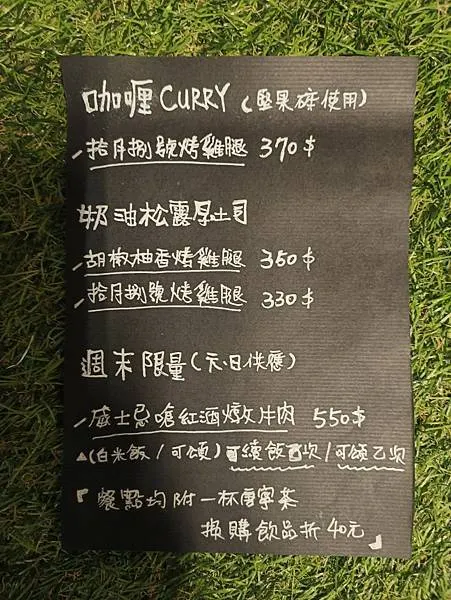 咖喱 CURRY (堅果碎使用)
拾月捌號烤雞腿 370$
奶油松露厚土司
胡椒柚香烤雞腿 350$
拾月捌號烤雞腿 330$
週末限量(六.日供應)
威士忌嗆紅酒燉牛肉 550$
(白米飯 / 可頌) 可續飯 次 / 可頌乙次
『餐點均附一杯康寧茶
报購飲品折40元』